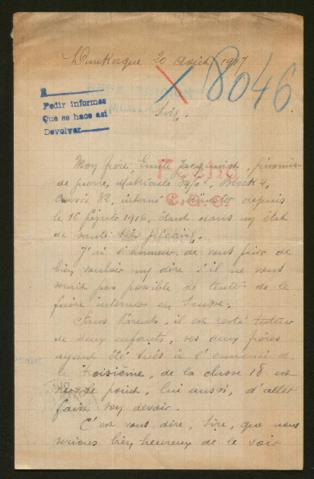 Dunkerque 20 août 1917
X 8046
R
Pedir informes
Que se hace así
Devolver
Sire,
Mon frère Emile, prisonnier
de guerre, Matricule, Block 4,
interné à depuis
le 16 1916, étant dans un état
de santé très
J'ai l'honneur de vous prier de
bien vouloir me dire s'il ne vous
serait pas possible de tenter de le
faire interner en Suisse.
Sans Parents, il est resté tuteur
de deux enfants, ses deux frères
ayant été tués à l'ennemi
le troisième, de la classe 18 est
sur le point, lui aussi, d'aller
faire son devoir.
C'est vous dire, Sire, que nous
serions bien heureux de le voir